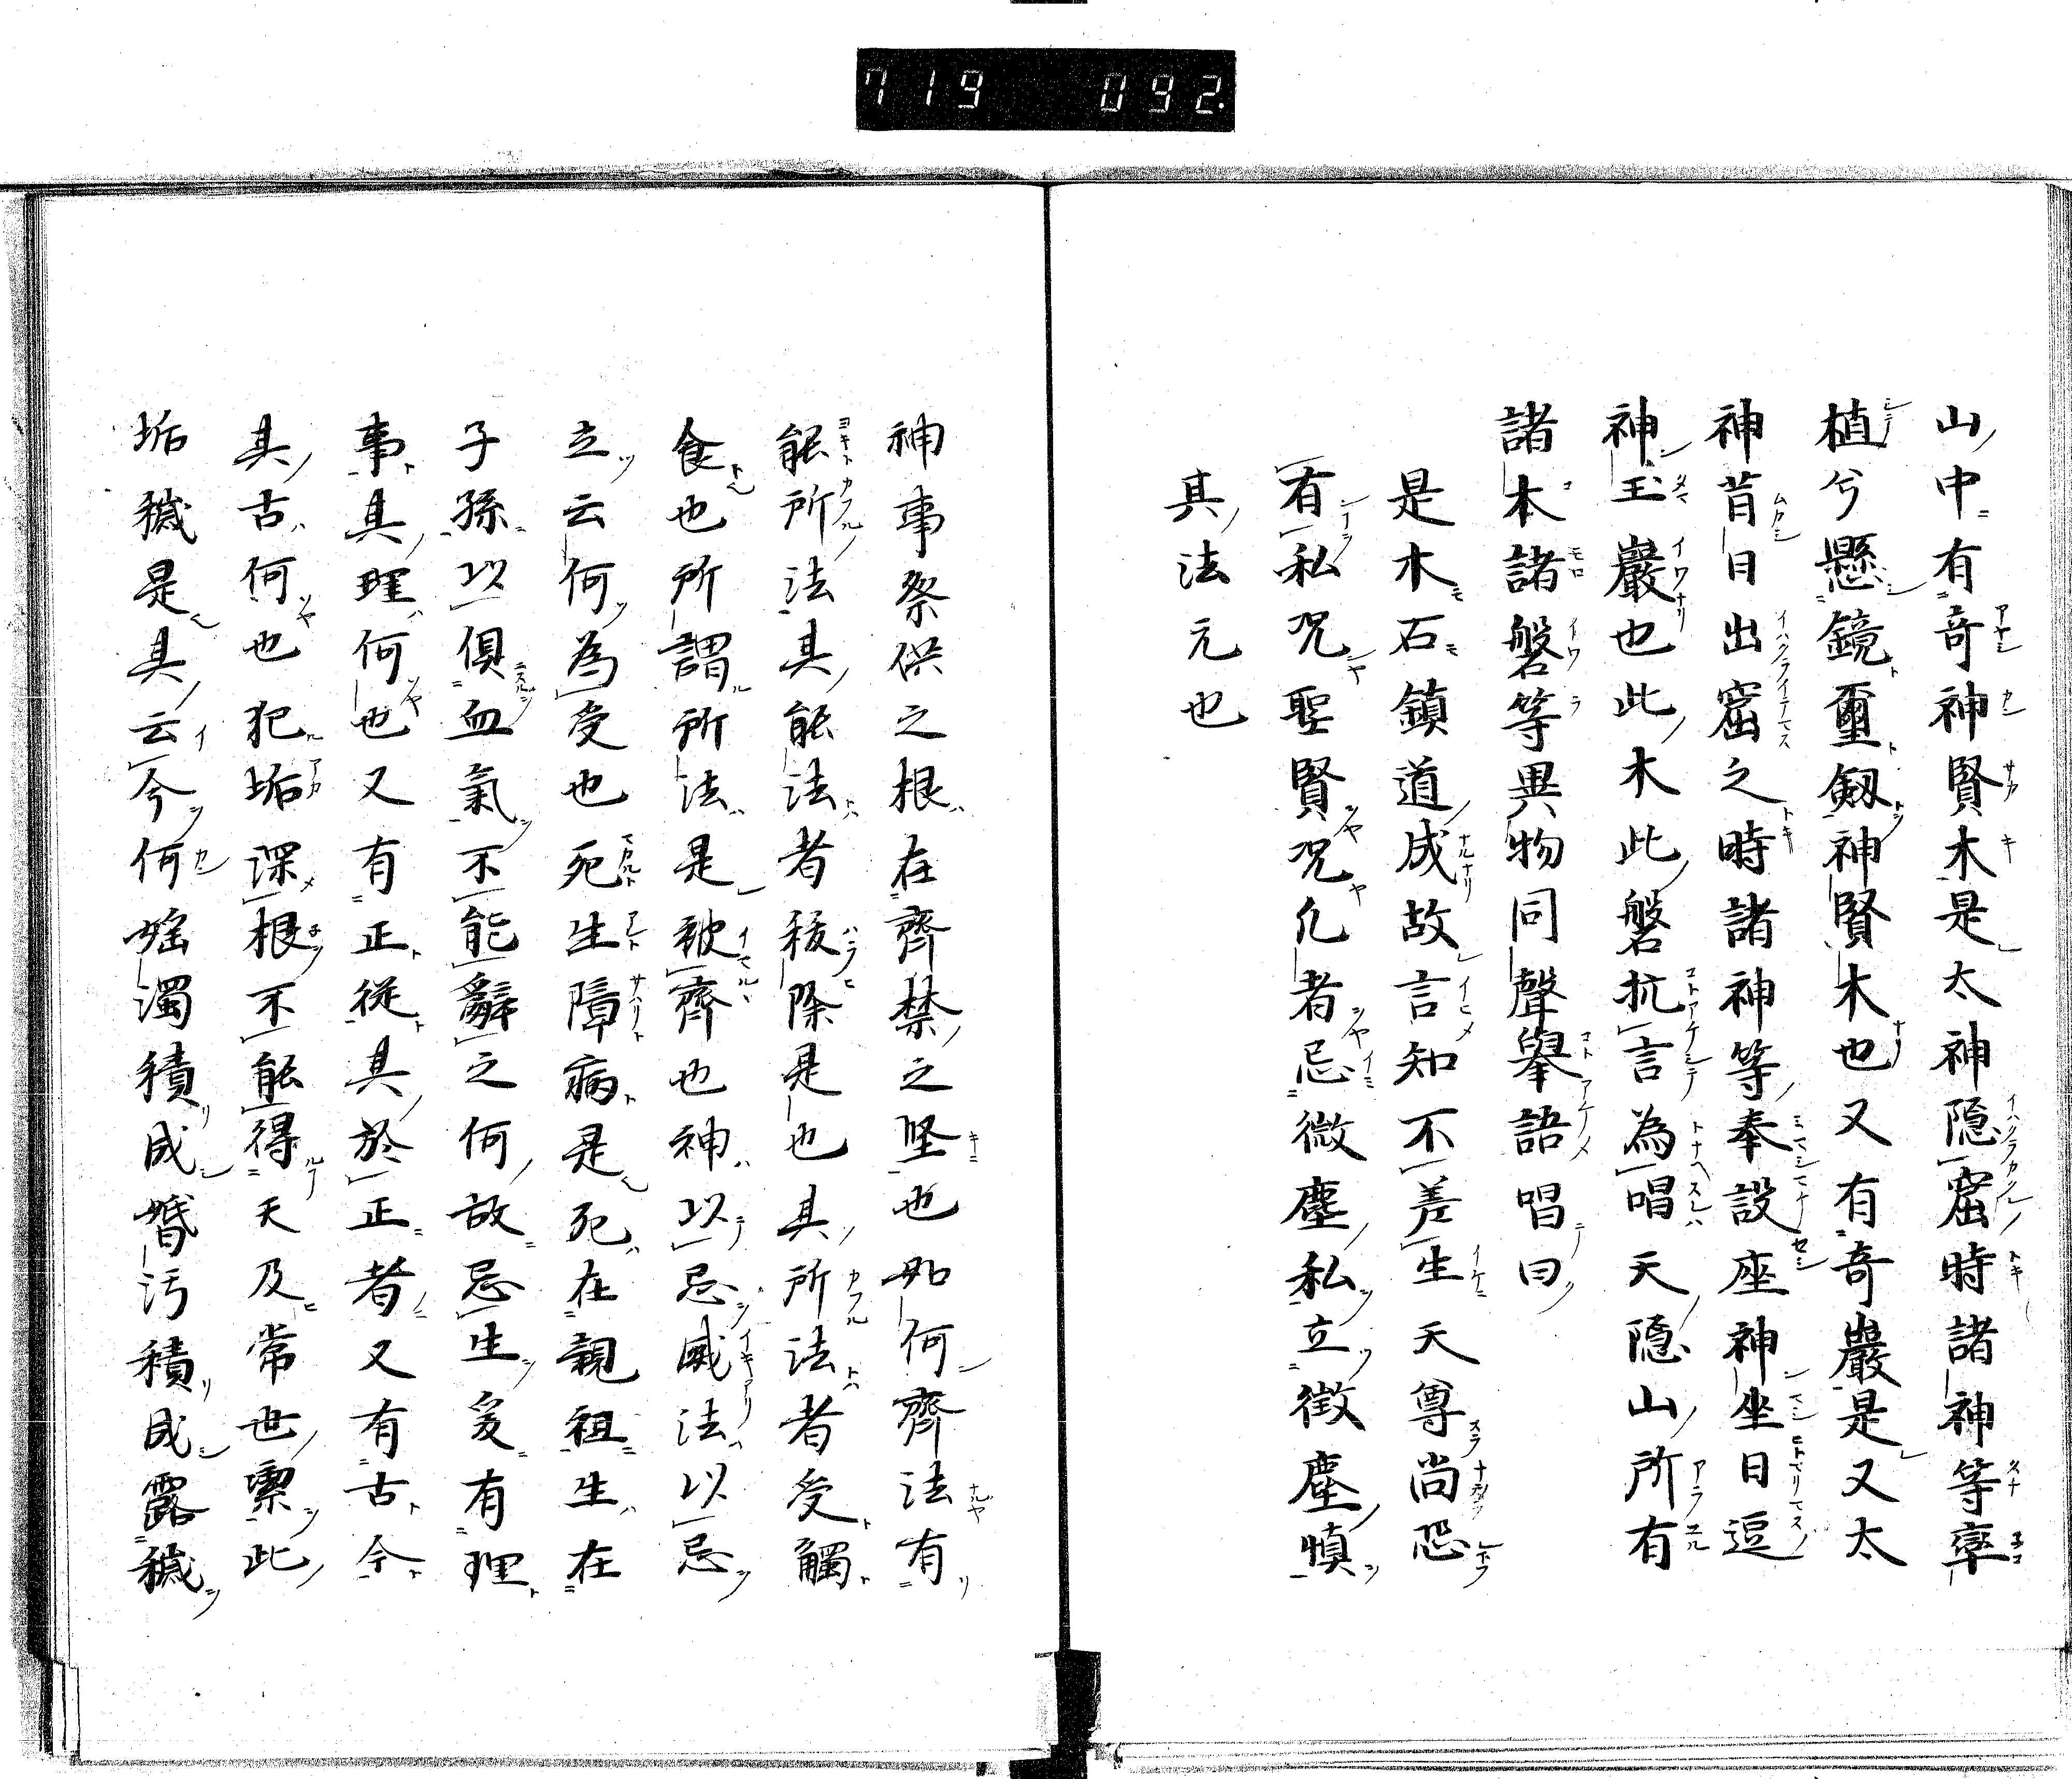 719 092.
山中有奇神賢木是太神隱窟時諸神等率
植兮懸鏡璽劔神賢木也又有奇巖是又太
神昔日出窟之時諸神等奉設座神坐日逗
神玉巖也此木此磐抗言為唱天隱山所有
諸木諸磐等異物同聲擧語唱曰
是木石鎮道成故言知不差生天尊尚恐
有私咒聖賢咒凢者忌微塵私立微塵慎
其法元也
神事祭供之根在齊禁之堅也如何齊法有
能所法其能法者秡除是也其所法者受觸
食也所謂所法是被齊也神以忌威法以忌
立云何為受也死生障病是死在親祖生在
子孫以俱血氣不能辭之何故忌生爰有理
事其理何也又有正從其於正者又有古今
其古何也犯垢深根不能得天及常世禦此
垢穢是其云今何婬濁積成婚污積成露穢